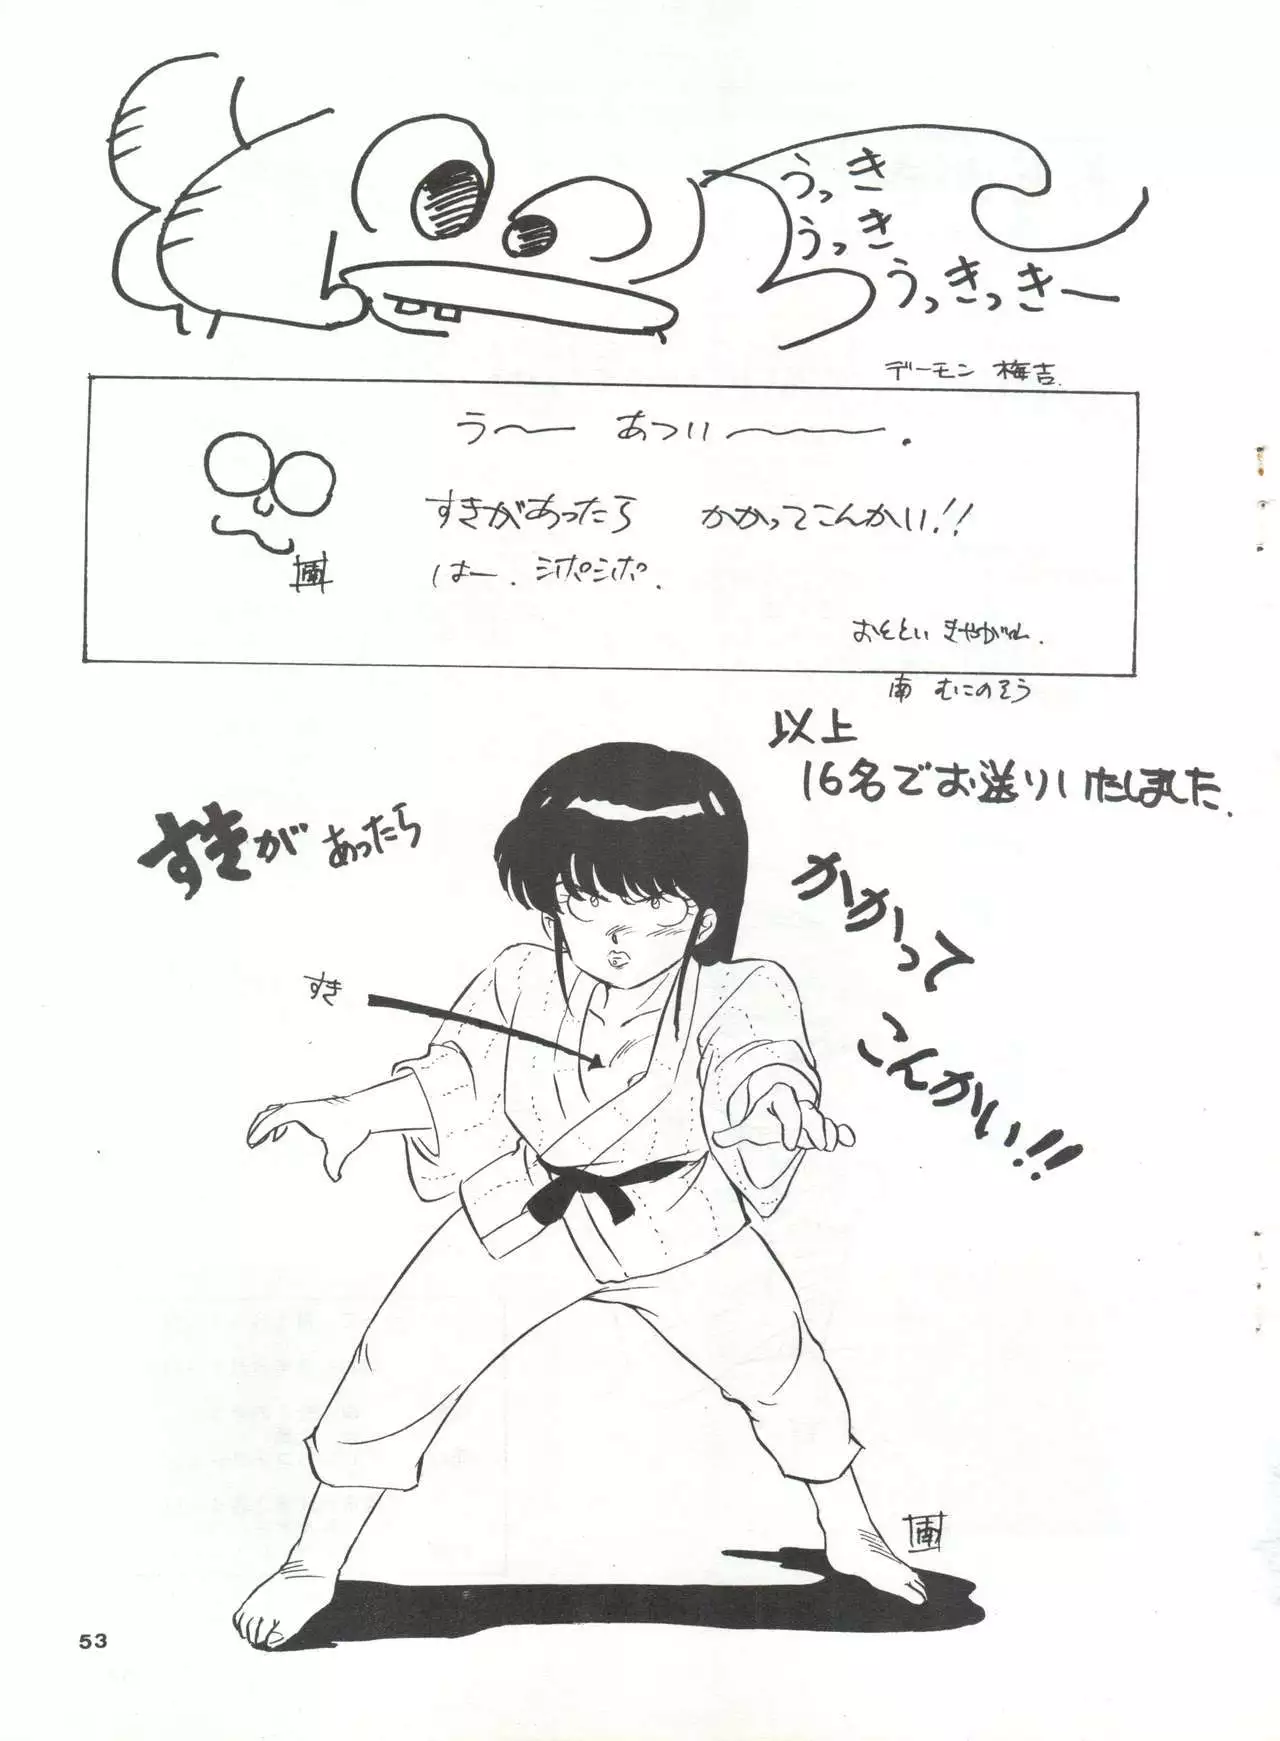 うっき
うっき
うっきっきー
デーモン 梅吉.
う〜 あつい〜.
すきがあったら かかってこんかい!!
はー. シポシポ.
南
おそとい きやがれ.
南 むこのそう
以上
16名でお送りいたしました.
すきが あったら
かかって
こんかい!!
すき
南
53